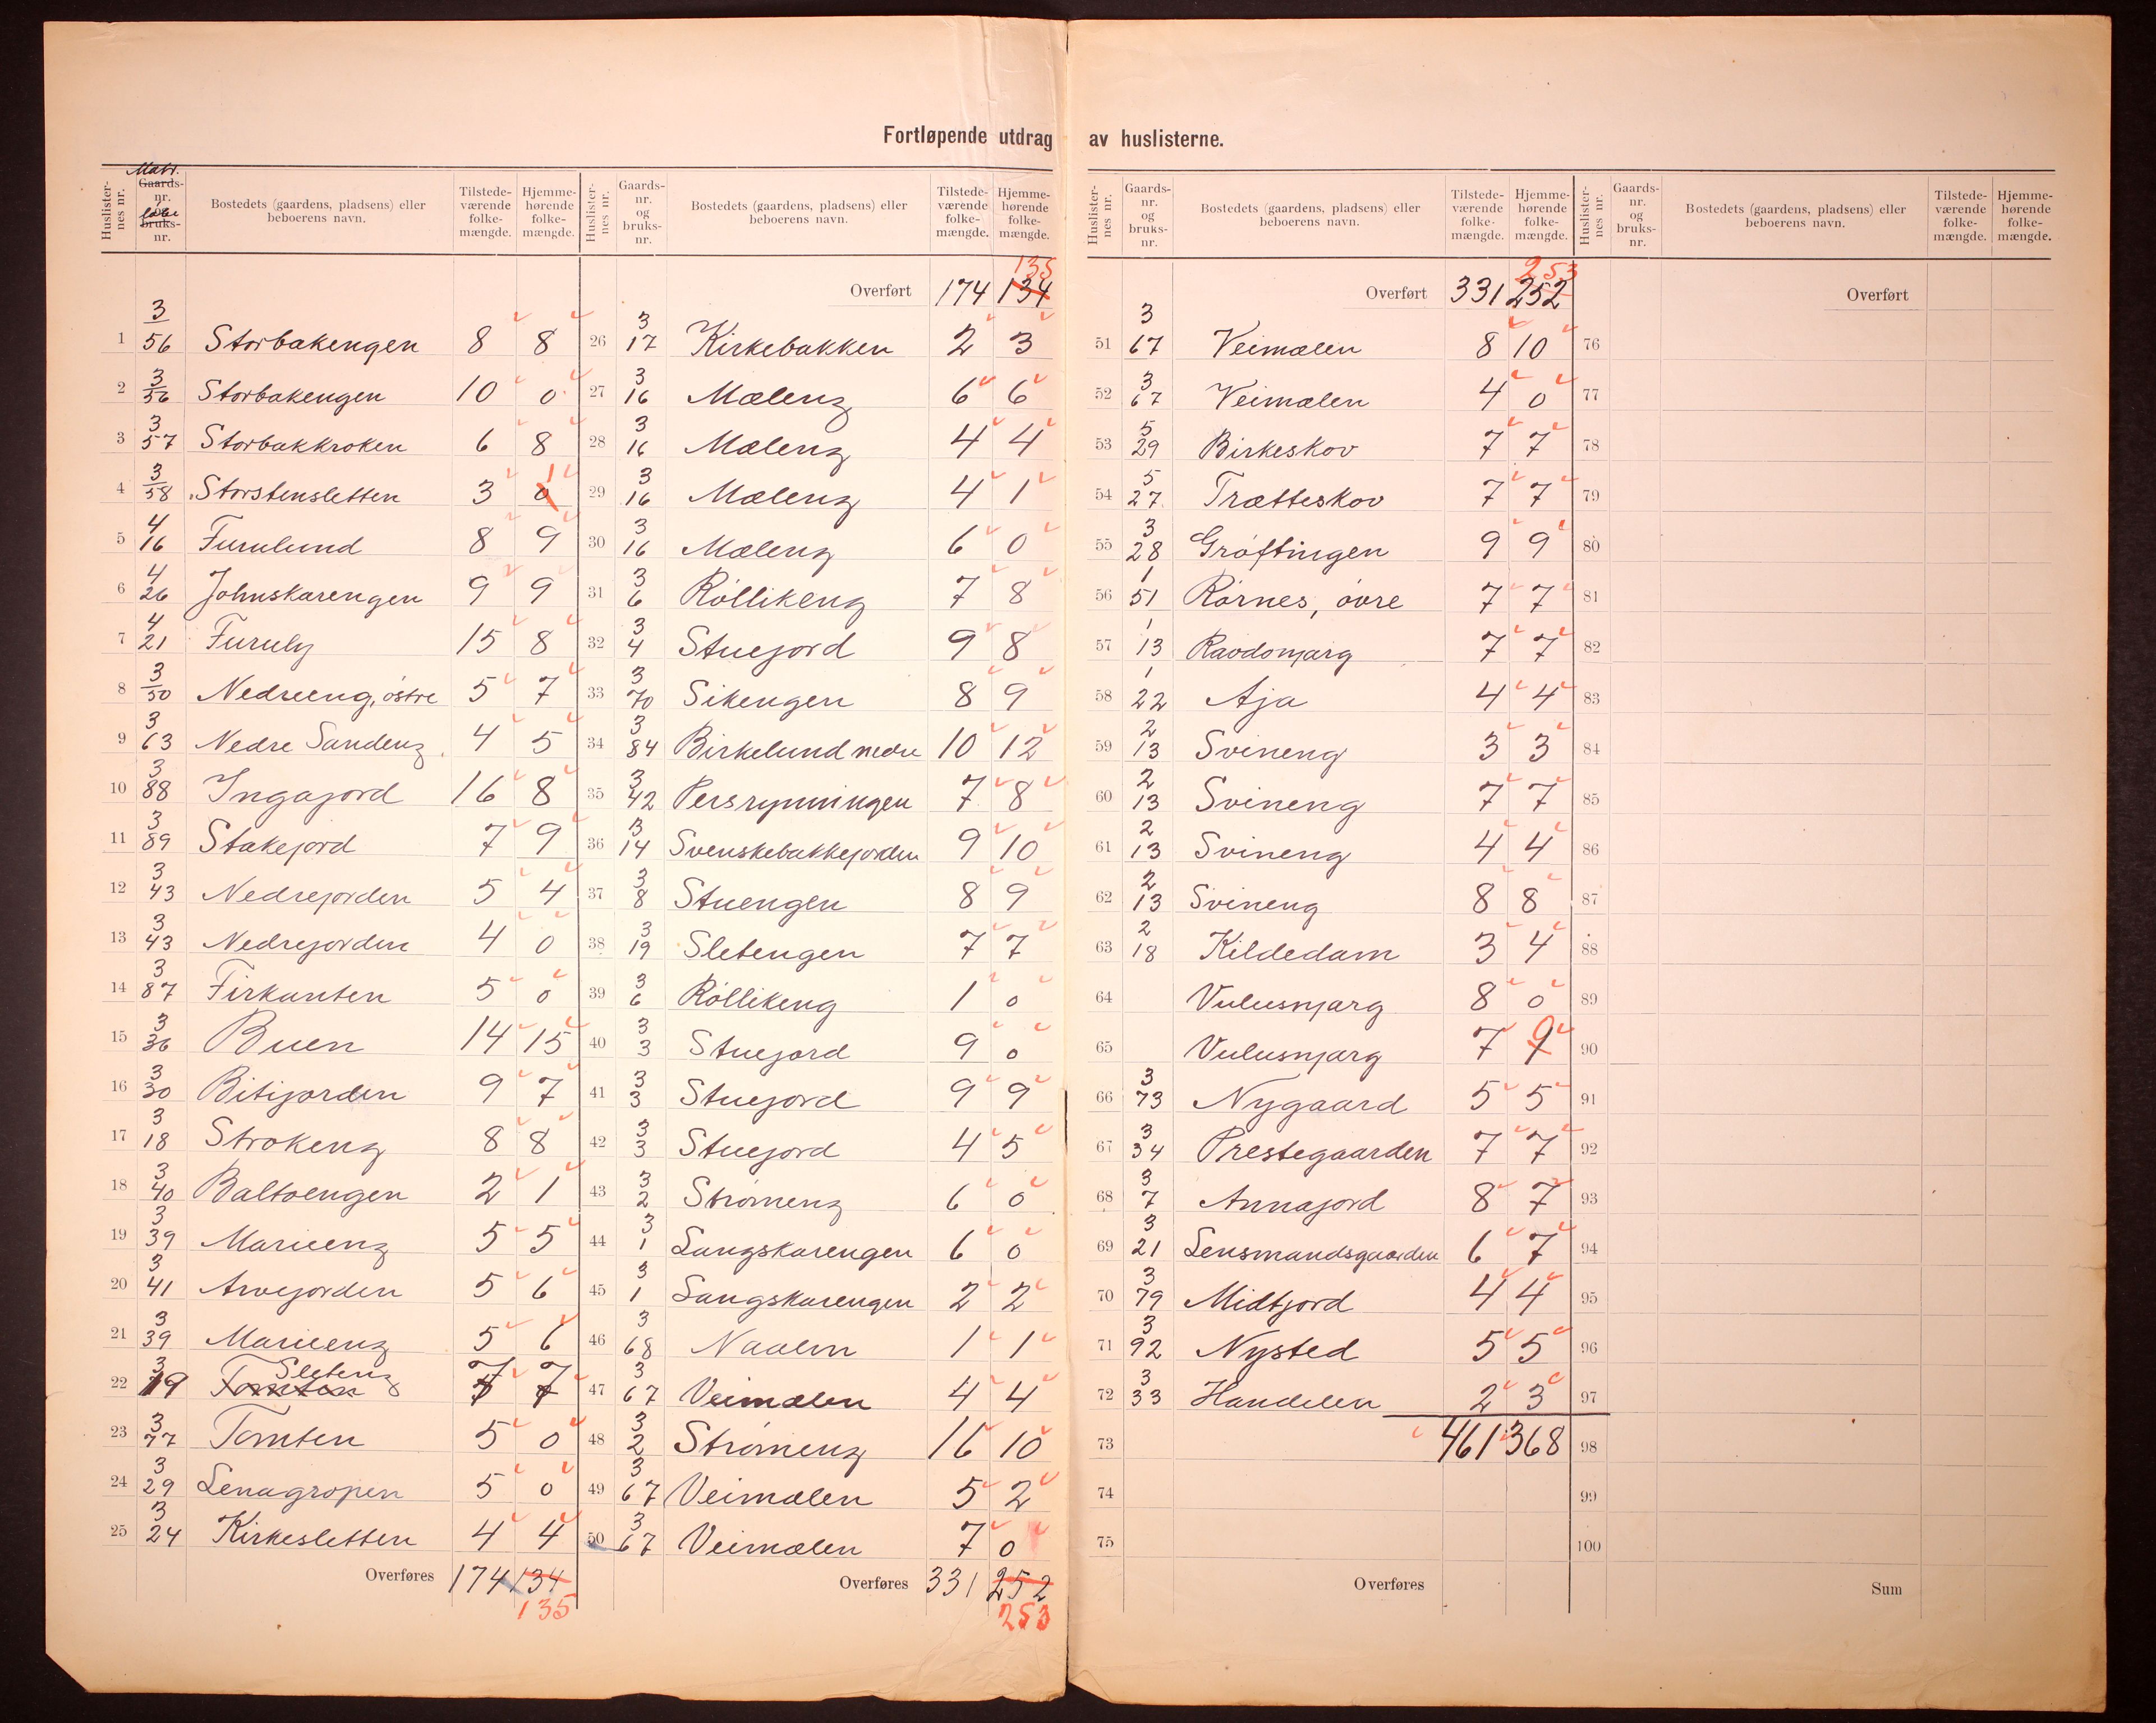 Fortløpende utdrag av huslisterne.
Huslisternes nr. Matr. Gaards-nr. løbe bruks-nr. Bostedets (gaardens, pladsens) eller beboerens navn. Tilstedeværende folkemængde. Hjemmehørende folkemængde.
1 3/56 Storbakengen 8 8
2 3/56 Storbakengen 10 0
3 3/57 Storbakkroken 6 8
4 3/58 Storstensletten 3 0 1
5 4/16 Furulund 8 9
6 4/26 Johnskarengen 9 9
7 4/21 Furuly 15 8
8 3/50 Nedreeng, østre 5 7
9 3/63 Nedre Sandeng 4 5
10 3/88 Ingajord 16 8
11 3/89 Stakejord 7 9
12 3/43 Nedrejorden 5 4
13 3/43 Nedrejorden 4 0
14 3/87 Firkanten 5 0
15 3/36 Buen 14 15
16 3/30 Bitijorden 9 7
17 3/18 Strokeng 8 8
18 3/40 Baltoengen 2 1
19 3/39 Marieeng 5 5
20 3/41 Arvejorden 5 6
21 3/39 Marieeng 5 6
22 3/19 Tomten Sleteng 7 7
23 3/77 Tomten 5 0
24 3/29 Lenagropen 5 0
25 3/24 Kirkesletten 4 4
Overføres 174 134
135
Huslisternes nr. Gaards-nr. og bruks-nr. Bostedets (gaardens, pladsens) eller beboerens navn. Tilstedeværende folkemængde. Hjemmehørende folkemængde.
135
Overført 174 134
26 3/17 Kirkebakken 2 3
27 3/16 Mæleng 6 6
28 3/16 Mæleng 4 4
29 3/16 Mæleng 4 1
30 3/16 Mæleng 6 0
31 3/6 Røllikeng 7 8
32 3/4 Stuejord 9 8
33 3/70 Sikengen 8 9
34 3/84 Birkelund nedre 10 12
35 3/42 Persrynningen 7 8
36 3/14 Svenskebakkejorden 9 10
37 3/8 Stuengen 8 9
38 3/19 Sletengen 7 7
39 3/6 Røllikeng 1 0
40 3/3 Stuejord 9 0
41 3/3 Stuejord 9 9
42 3/3 Stuejord 4 5
43 3/2 Strømeng 6 0
44 3/1 Langskarengen 6 0
45 3/1 Langskarengen 2 2
46 3/68 Naalen 1 1
47 3/67 Veimælen 4 4
48 3/2 Strømeng 16 10
49 3/67 Veimælen 5 2
50 3/67 Veimælen 7 0
Overføres 331 252
253
Huslisternes nr. Gaards-nr. og bruks-nr. Bostedets (gaardens, pladsens) eller beboerens navn. Tilstedeværende folkemængde. Hjemmehørende folkemængde.
253
Overført 331 252
51 3/67 Veimælen 8 10
52 3/67 Veimælen 4 0
53 5/29 Birkeskov 7 7
54 5/27 Trætteskov 7 7
55 3/28 Grøftingen 9 9
56 1/51 Rørnes, øvre 7 7
57 1/13 Ravdonjarg 7 7
58 1/22 Aja 4 4
59 2/13 Svineng 3 3
60 2/13 Svineng 7 7
61 2/13 Svineng 4 4
62 2/13 Svineng 8 8
63 2/18 Kildedam 3 4
64 Vulusnjarg 8 0
65 Vulusnjarg 7 9
66 3/73 Nygaard 5 5
67 3/34 Prestegaarden 7 7
68 3/7 Annajord 8 7
69 3/21 Lensmandsgaarden 6 7
70 3/79 Midtjord 4 4
71 3/92 Nysted 5 5
72 3/33 Handelen 2 3
73 461 368
74
75
Overføres
Huslisternes nr. Gaards-nr. og bruks-nr. Bostedets (gaardens, pladsens) eller beboerens navn. Tilstedeværende folkemængde. Hjemmehørende folkemængde.
Overført
76
77
78
79
80
81
82
83
84
85
86
87
88
89
90
91
92
93
94
95
96
97
98
99
100
Sum